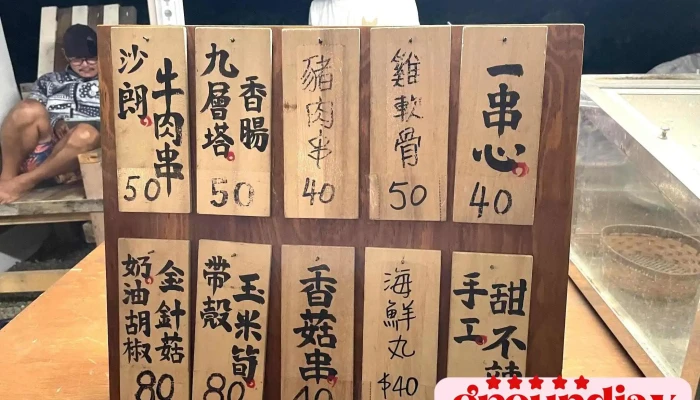 沙朗
牛肉串
50
九層塔
香腸
50
豬肉串
40
雞軟骨
50
一串心
40
奶油胡椒
金針菇
80
帶殼
玉米筍
80
香菇串
40
海鮮丸
$40
手工
甜不辣